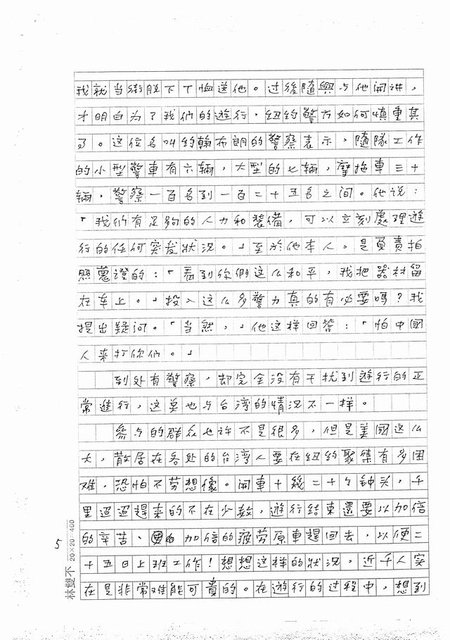 我就当街脱下丁恤送他。过後随兴与他闲谈，
才明白为了我们的遊行，纽约警方如何慎重其
了。这位名叫约翰布朗的警察表示，随隊工作
的小型警車有六輛，大型的七輛，摩拖車三十
輛，警察一百名到一百二十五名之间。他说：
「我们有足夠的人力和装備，可以立刻處理遊
行的任何突发狀况。」至於他本人，是負責拍
照蒐證的：「看到你們这么和平，我把器材留
在车上。」投入这么多警力真的有必要嗎？我
提出疑问。「当然，」他这样回答：「怕中國
人来打你們。」
到处有警察，却完全没有干扰到遊行的正
常進行，这点也与台湾的情况不一样。
參与的群众也许不是很多，但是美國这么
大，散居在各处的台湾人要在纽约聚集有多困
难，恐怕不劳想像。開車十幾二十个钟头，千
里迢迢趕来的不在少数，遊行结束還要以加倍
的辛苦、加倍的疲劳原車趕回去，以便二
十五日上班工作！想想这样的狀况，近千人实
在是非常难能可貴的。在遊行的过程中，想到
5
林雙不 20×20=400